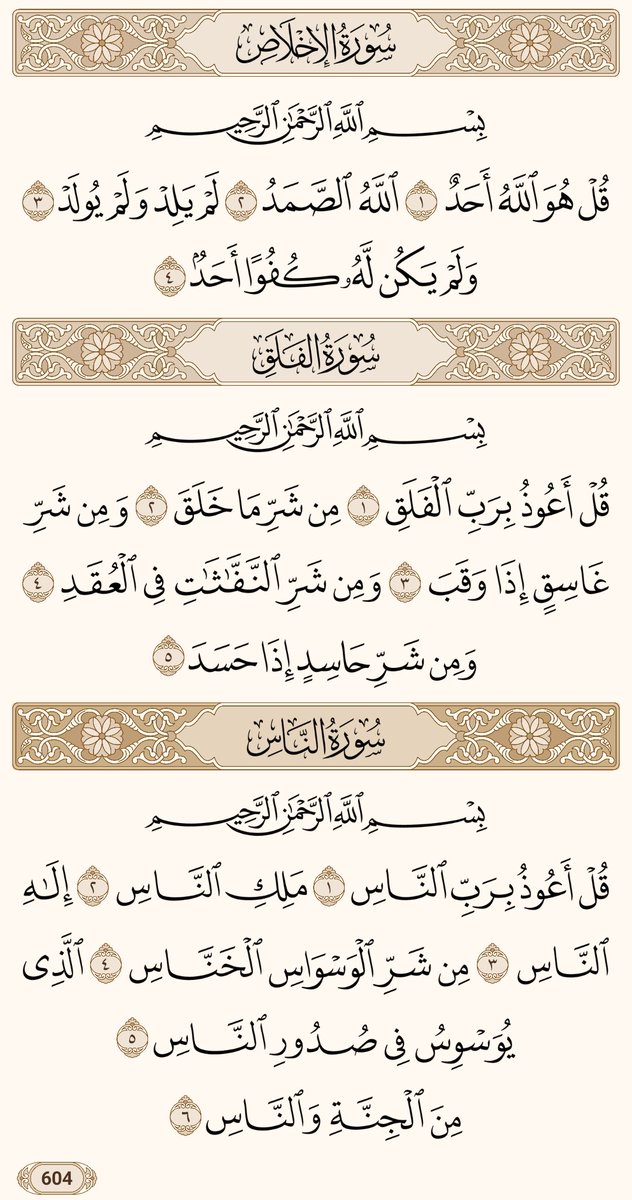 سُورَةُ الإِخْلَاصِ
بِسْمِ ٱللَّهِ ٱلرَّحْمَٰنِ ٱلرَّحِيمِ
قُلْ هُوَ ٱللَّهُ أَحَدٌ ١ ٱللَّهُ ٱلصَّمَدُ ٢ لَمْ يَلِدْ وَلَمْ يُولَدْ ٣
وَلَمْ يَكُن لَّهُۥ كُفُوًا أَحَدٌۢ ٤
سُورَةُ الفَلَقِ
بِسْمِ ٱللَّهِ ٱلرَّحْمَٰنِ ٱلرَّحِيمِ
قُلْ أَعُوذُ بِرَبِّ ٱلْفَلَقِ ١ مِن شَرِّ مَا خَلَقَ ٢ وَمِن شَرِّ
غَاسِقٍ إِذَا وَقَبَ ٣ وَمِن شَرِّ ٱلنَّفَّٰثَٰتِ فِى ٱلْعُقَدِ ٤
وَمِن شَرِّ حَاسِدٍ إِذَا حَسَدَ ٥
سُورَةُ النَّاسِ
بِسْمِ ٱللَّهِ ٱلرَّحْمَٰنِ ٱلرَّحِيمِ
قُلْ أَعُوذُ بِرَبِّ ٱلنَّاسِ ١ مَلِكِ ٱلنَّاسِ ٢ إِلَٰهِ
ٱلنَّاسِ ٣ مِن شَرِّ ٱلْوَسْوَاسِ ٱلْخَنَّاسِ ٤ ٱلَّذِى
يُوَسْوِسُ فِى صُدُورِ ٱلنَّاسِ ٥
مِنَ ٱلْجِنَّةِ وَٱلنَّاسِ ٦
604